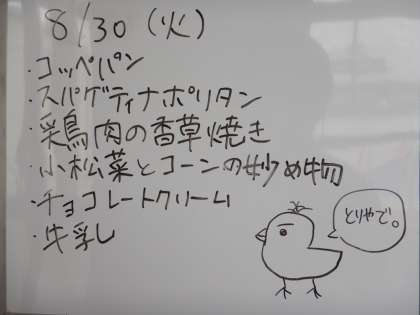 8/30(火)
・コッペパン
・スパゲティナポリタン
・鶏肉の香草焼き
・小松菜とコーンの炒め物
・チョコレートクリーム
・牛乳
とりやで。